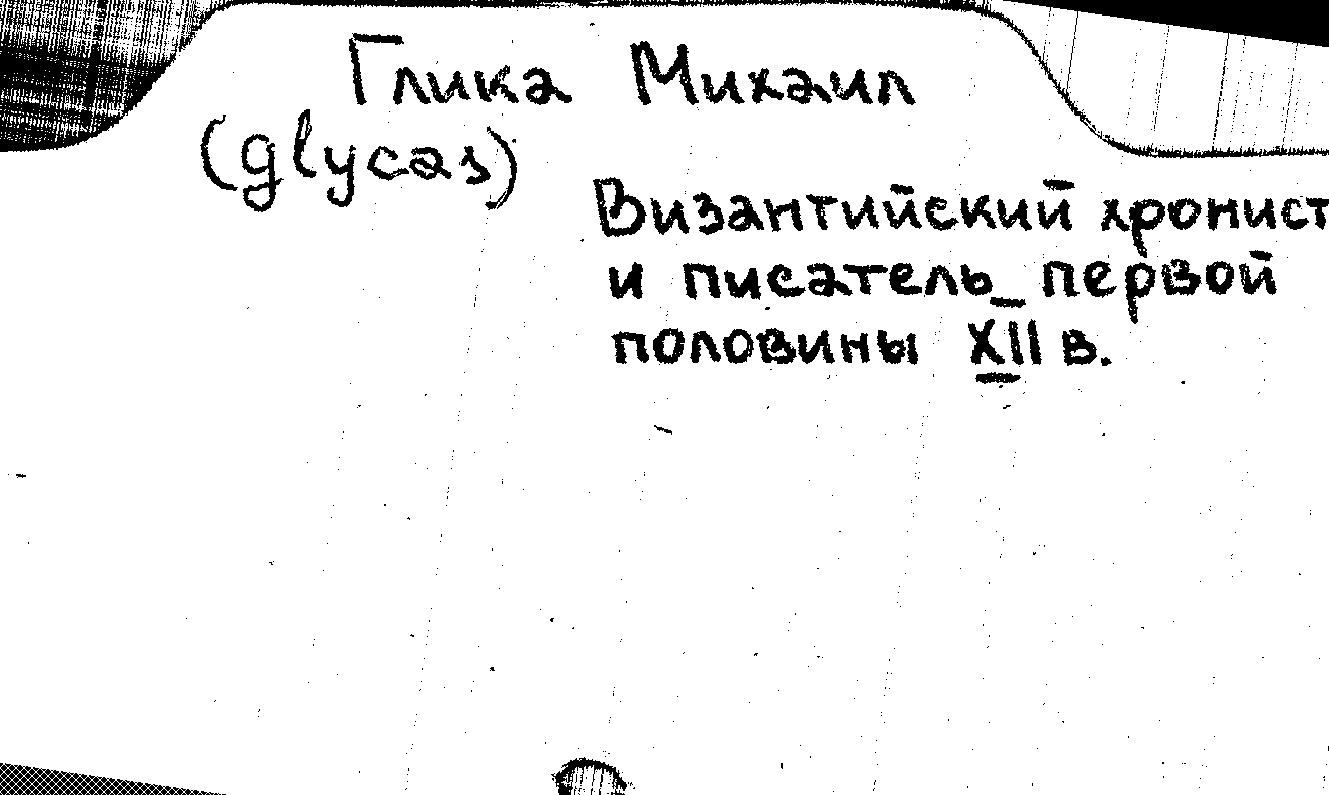 Глика Михаил
(glycas)
Византийский хронист
и писатель первой
половины XII в.